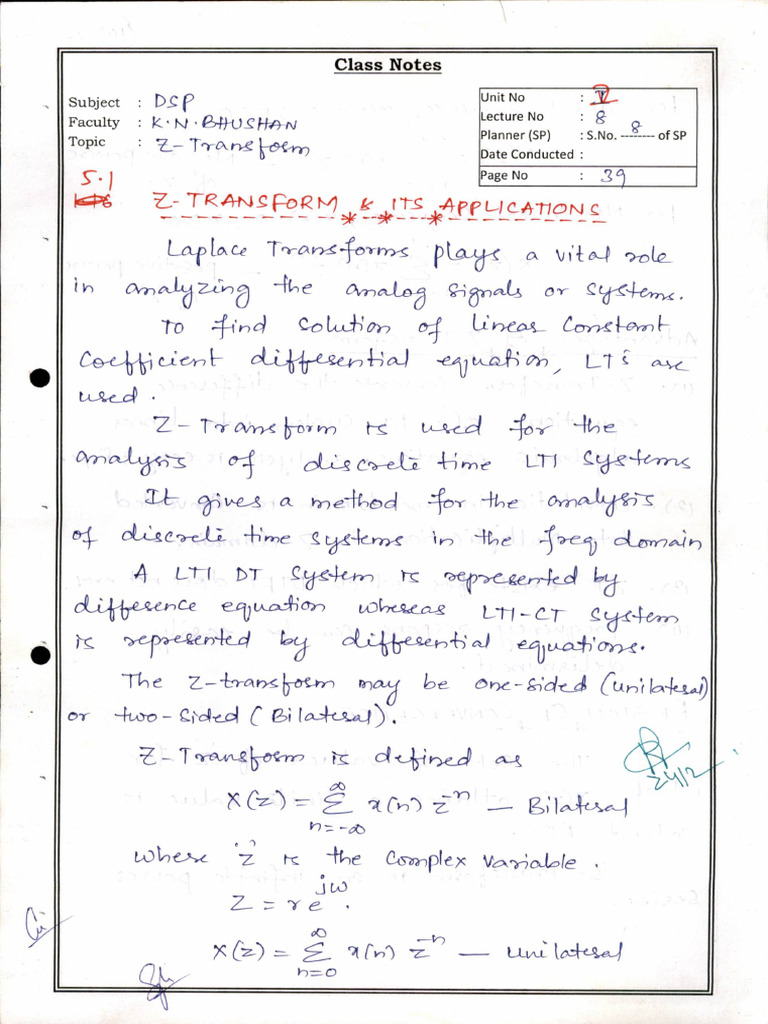 Class Notes
Subject : DSP
Faculty : K.N.BHUSHAN
Topic : Z-Transform
Unit No : V
Lecture No : 8
Planner (SP) : S.No. -------- 8 of SP
Date Conducted :
Page No : 39
5.1
Z-TRANSFORM & ITS APPLICATIONS
Laplace Transforms plays a vital role
in analyzing the analog signals or systems.
To find solution of linear constant
coefficient differential equation, LTs are
used.
Z-Transform is used for the
analysis of discrete time LTI systems
It gives a method for the analysis
of discrete time systems in the freq domain
A LTI DT system is represented by
difference equation whereas LTI-CT system
is represented by differential equations.
The Z-transform may be one-sided (unilateral)
or two-sided (Bilateral).
Z-Transform is defined as
X(z) = ∑_{n=-∞}^{∞} x(n) z^{-n} — Bilateral
where 'z' is the complex variable.
Z = re^{jω}.
X(z) = ∑_{n=0}^{∞} x(n) z^{-n} — unilateral